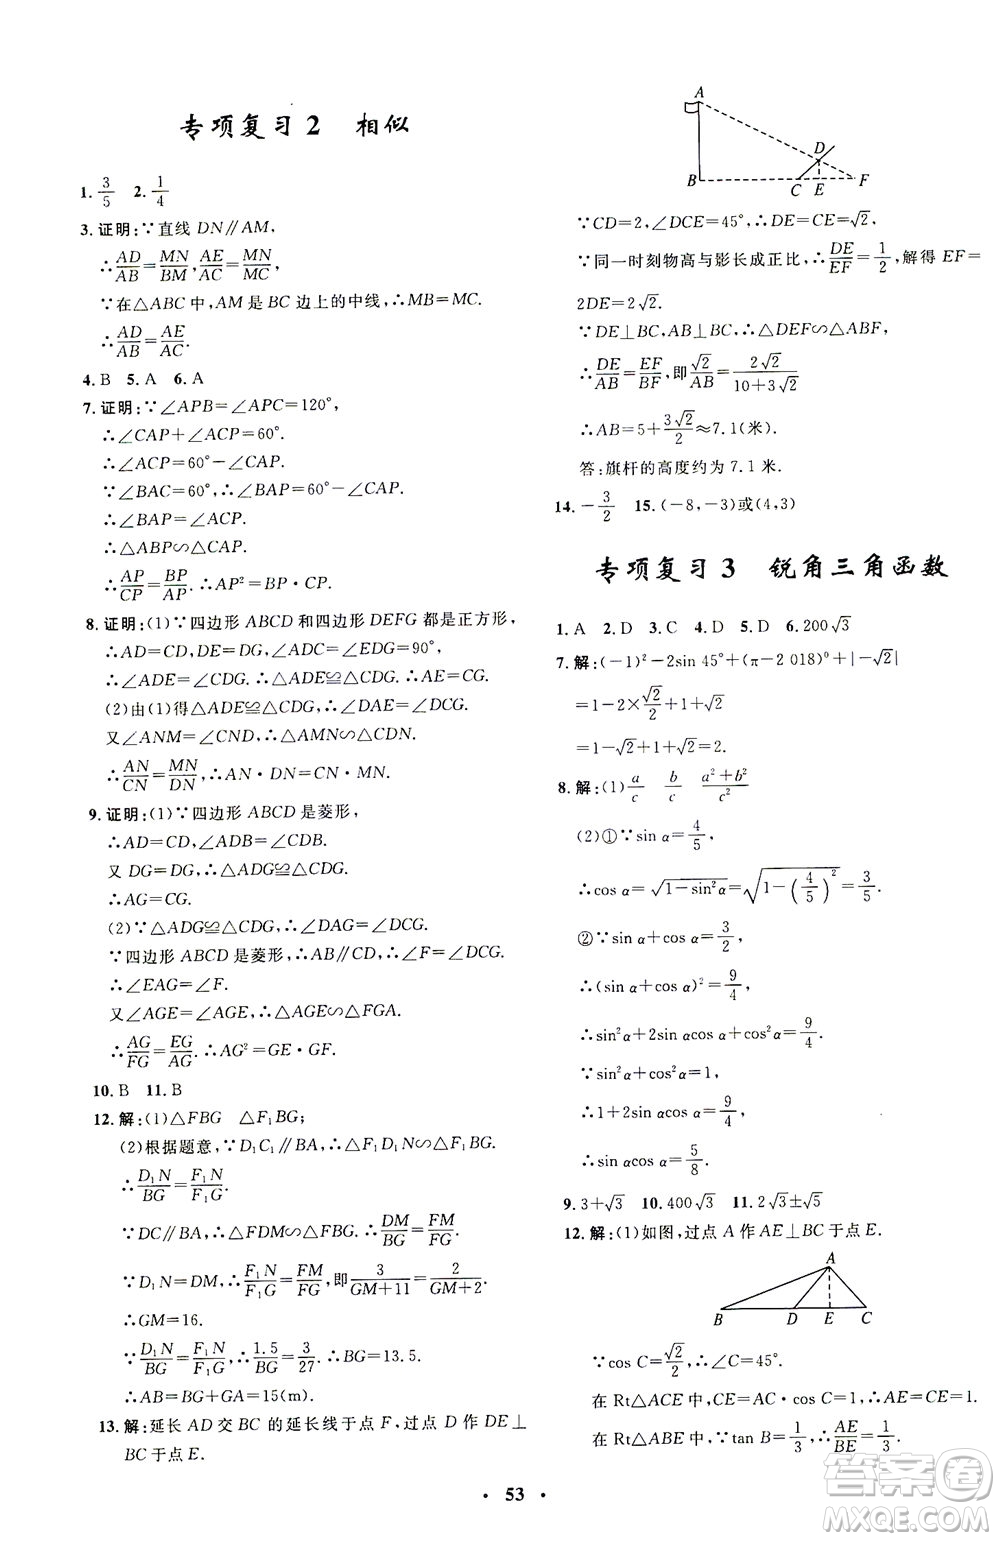 专项复习2 相似
1. 3/5 2. 1/4
3. 证明:∵直线 DN∥AM,
∴AD/AB=MN/BM,AE/AC=MN/MC,
∵在△ABC 中,AM 是 BC 边上的中线,∴MB=MC.
∴AD/AB=AE/AC.
4. B 5. A 6. A
7. 证明:∵∠APB=∠APC=120°,
∴∠CAP+∠ACP=60°.
∴∠ACP=60°-∠CAP.
∵∠BAC=60°,∴∠BAP=60°-∠CAP.
∴∠BAP=∠ACP.
∴△ABP∽△CAP.
∴AP/CP=BP/AP.∴AP²=BP·CP.
8. 证明:(1)∵四边形 ABCD 和四边形 DEFG 都是正方形,
∴AD=CD,DE=DG,∠ADC=∠EDG=90°,
∴∠ADE=∠CDG,∴△ADE≌△CDG.∴AE=CG.
(2)由(1)得△ADE≌△CDG,∴∠DAE=∠DCG.
又∠ANM=∠CND,∴△AMN∽△CDN.
∴AN/CN=MN/DN,∴AN·DN=CN·MN.
9. 证明:(1)∵四边形 ABCD 是菱形,
∴AD=CD,∠ADB=∠CDB.
又 DG=DG,∴△ADG≌△CDG.
∴AG=CG.
(2)∵△ADG≌△CDG,∴∠DAG=∠DCG.
∵四边形 ABCD 是菱形,∴AB∥CD,∴∠F=∠DCG.
∴∠EAG=∠F.
又∠AGE=∠AGE,∴△AGE∽△FGA.
∴AG/FG=EG/AG.∴AG²=GE·GF.
10. B 11. B
12. 解:(1)△FBG △F₁BG;
(2)根据题意,∵D₁C₁∥BA,∴△F₁D₁N∽△F₁BG.
∴D₁N/BG=F₁N/F₁G.
∵DC∥BA,∴△FDM∽△FBG.∴DM/BG=FM/FG.
∵D₁N=DM,∴F₁N/F₁G=FM/FG,即3/(GM+11)=2/(GM+2).
∴GM=16.
∵D₁N/BG=F₁N/F₁G,∴1.5/BG=3/27.∴BG=13.5.
∴AB=BG+GA=15(m).
13. 解:延长 AD 交 BC 的延长线于点 F,过点 D 作 DE⊥
BC 于点 E.
A
D
B C E F
∵CD=2,∠DCE=45°,∴DE=CE=√2.
∵同一时刻物高与影长成正比,∴DE/EF=1/2,解得 EF=
2DE=2√2.
∵DE⊥BC,AB⊥BC,∴△DEF∽△ABF,
∴DE/AB=EF/BF,即√2/AB=2√2/(10+3√2)
∴AB=5+3√2/2≈7.1(米).
答:旗杆的高度约为 7.1 米.
14. -3/2 15. (-8,-3)或(4,3)
专项复习3 锐角三角函数
1. A 2. D 3. C 4. D 5. D 6. 200√3
7. 解:(-1)²-2sin 45°+(π-2 018)⁰+|-√2|
=1-2×√2/2+1+√2
=1-√2+1+√2=2.
8. 解:(1)a/c b/c (a²+b²)/c²
(2)①∵sin α=4/5,
∴cos α=√(1-sin²α)=√(1-(4/5)²)=3/5.
②∵sin α+cos α=3/2,
∴(sin α+cos α)²=9/4,
∴sin²α+2sin αcos α+cos²α=9/4.
∵sin²α+cos²α=1,
∴1+2sin αcos α=9/4,
∴sin αcos α=5/8.
9. 3+√3 10. 400√3 11. 2√3±√5
12. 解:(1)如图,过点 A 作 AE⊥BC 于点 E.
A
B D E C
∵cos C=√2/2,∴∠C=45°.
在 Rt△ACE 中,CE=AC·cos C=1,∴AE=CE=1.
在 Rt△ABE 中,∵tan B=1/3,∴AE/BE=1/3.
· 53 ·
答案卷
MXQE.COM